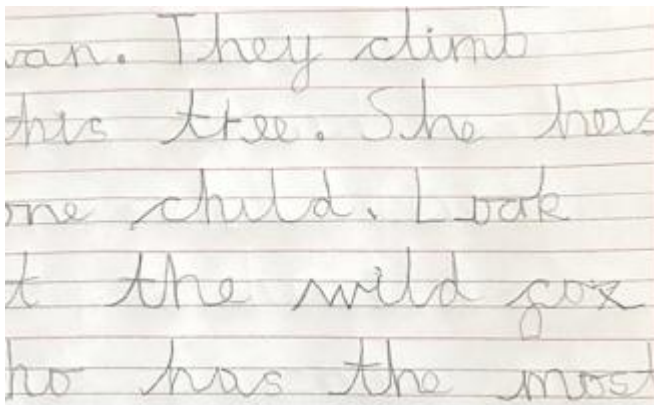 van. They climb
this tree. She has
one child. Look
t the wild fox
ho has the most